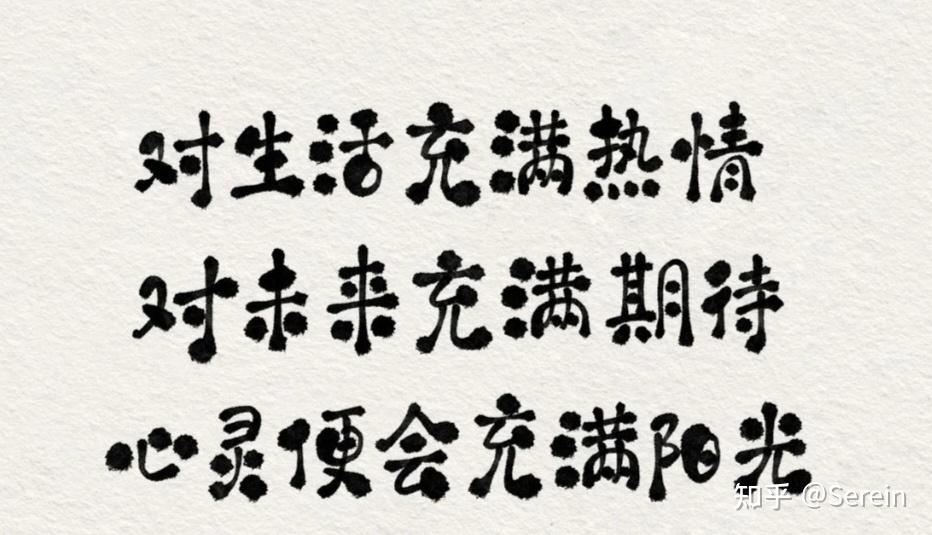 对生活充满热情
对未来充满期待
心灵便会充满阳光
知乎 @Serein